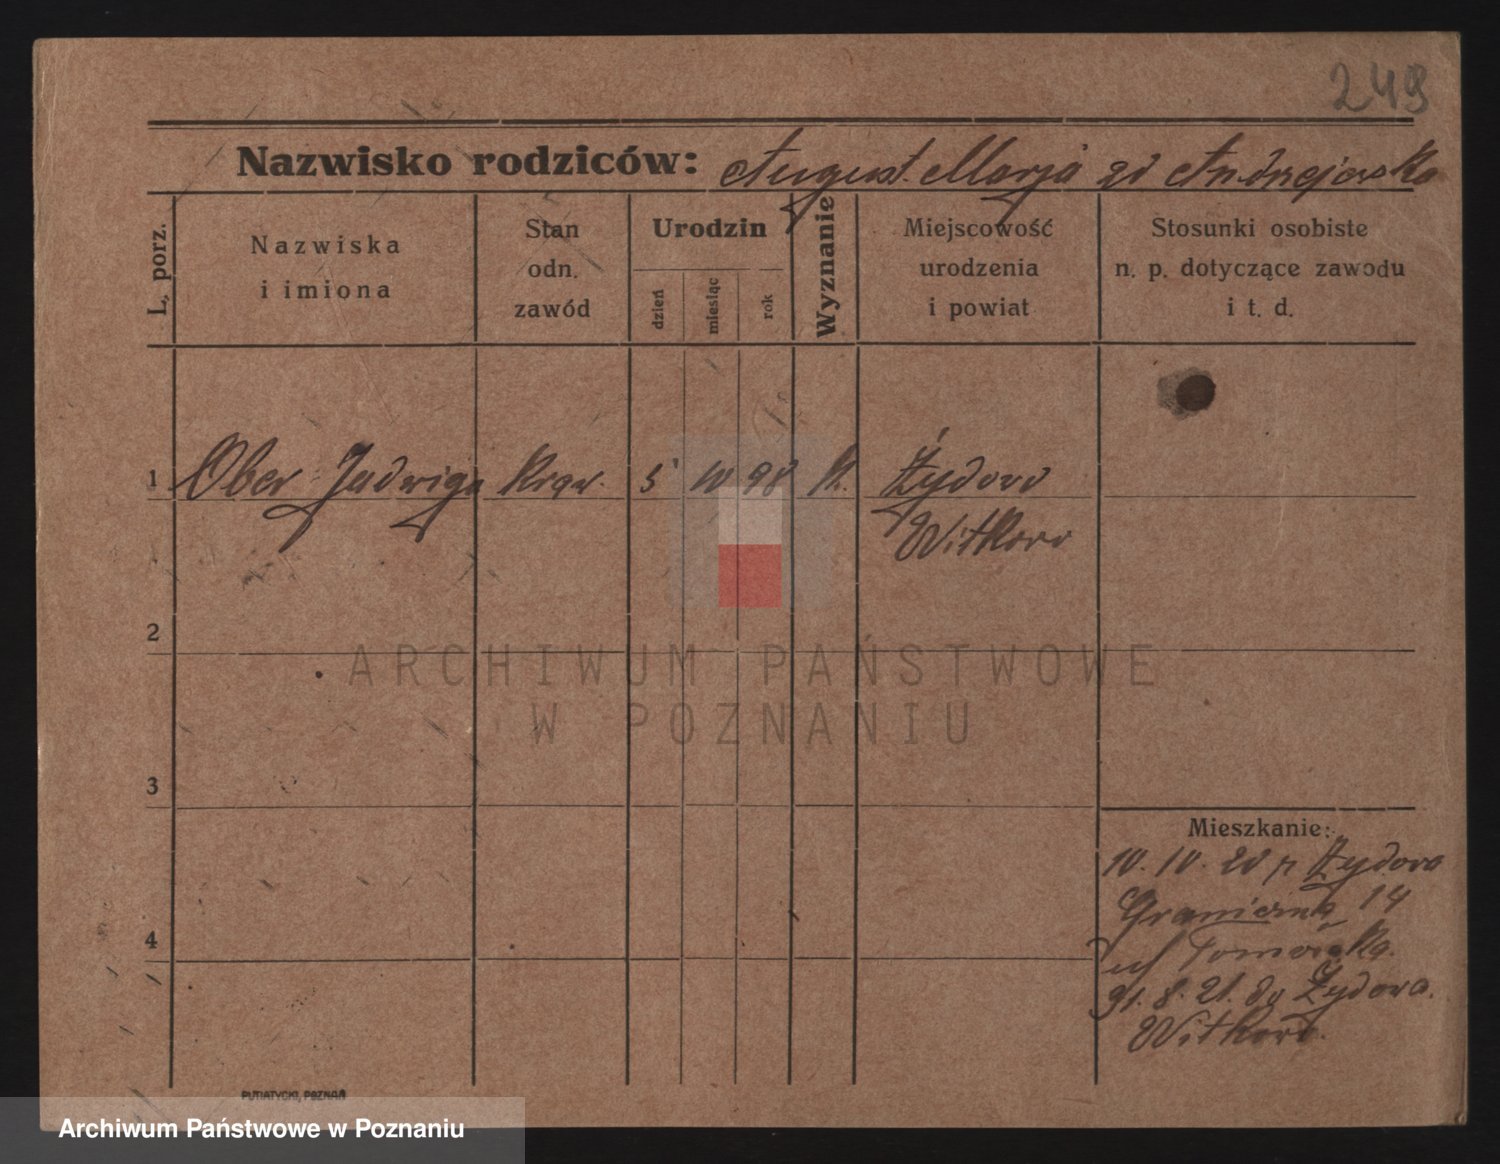 249
Nazwisko rodziców: August. Marja zd Andrzejewska
L. porz.
Nazwiska
i imiona
Stan
odn.
zawód
Urodzin
dzień
miesiąc
rok
Wyznanie
Miejscowość
urodzenia
i powiat
Stosunki osobiste
n. p. dotyczące zawodu
i t. d.
1 Ober Jadwiga Kraw. 5 10 98 k. Żydowo
Witkowo
2
3
4
Mieszkanie:
10. 10. 20 z Żydowa
Graniczna 14
31. 8. 21. do Żydowa.
Witkowo.
PUTIATYCKI, POZNAŃ
ARCHIWUM PAŃSTWOWE
W POZNANIU
Archiwum Państwowe w Poznaniu